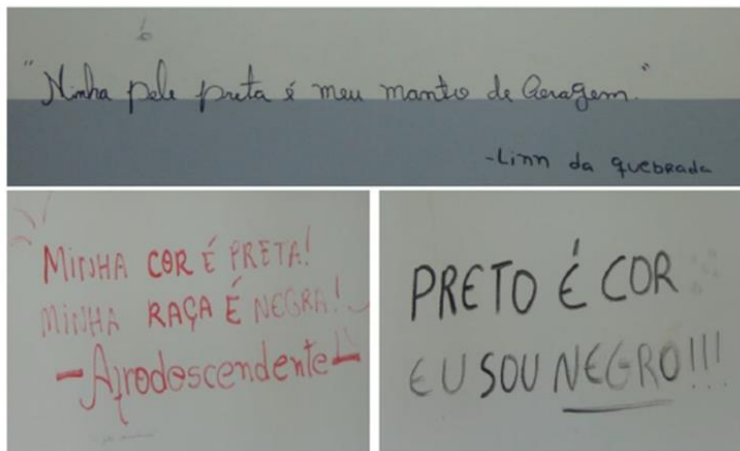 "Minha pele preta é meu manto de Coragem."
-Linn da quebrada
MINHA COR É PRETA!
MINHA RAÇA É NEGRA!
- Afrodescendente -
PRETO É COR
EU SOU NEGRO!!!